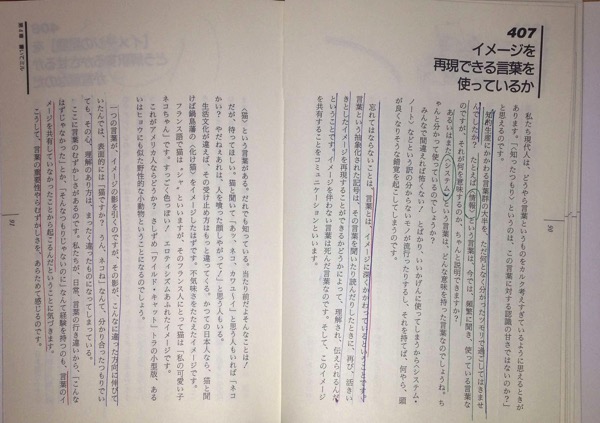 407
イメージを
再現できる言葉を
使っているか
私たち現代人は、どうから言葉というものをカルク考えすぎているように思えるときが
あります。「〈知ったつもり〉というのは、この言葉に対する認識の甘さではないのか?」
と思えるのです。
知的生産にかかわる言葉群の大半を、ただ何となく分かったツモリで過ごしてはきませ
んでしたか? たとえば〈情報〉という言葉は、今では、頻繁に聞き、使っている言葉な
のですが、それが何を意味するのか、ちゃんと説明できますか?
あるいはまた〈システム〉という言葉は、どんな意味を持った言葉なのでしょうね。ち
ゃんと分かって使っているのでしょうか?
みんなで間違えれば怖くない!とばかり、いいかげんに使ってしまうから〈システム・
ノート〉などという訳の分からないモノが流行ったりするし、それを持てば、何やら、頭
が良くなりそうな錯覚を起こしてしまうのです。
忘れてはならないことは、言葉とは、イメージに深くかかわっているということです。
言葉という抽象化された記号は、その言葉を聞いたり読んだりしたときに、再び、活きい
きとしたイメージを再現することができるかどうかによって、理解され、伝えられるんだ
ということです。イメージを伴わない言葉は死んだ言葉なのです。そして、このイメージ
を共有することをコミュニケーションといいます。
96
〈猫〉という言葉がある。だれでも知っている。当たり前だよそんなことは!
だが、待ってほしい。猫と聞いて「あッ、ネコ、カワユ〜イ」と思う人もいれば「ネコ
かい? やだねぇあれは、人を喰った顔しやがって!」と思う人もいる。
生活文化が違えば、その受け止め方はもっと違ってくる。かつての日本人なら、猫と聞
けば鍋島藩の〈化け猫〉をイメージしたはずです。不気味さをたたえたイメージです。
フランス語で猫は「シャ」といいますが、そのフランス人にとって猫は「私の可愛い子
ネコちゃん」です。すっごく色っぽい! エロティシズムあふれたイメージです。
これがアメリカ人ならどうか? さしずめ「ワイルド・キャット」トラの小型版、ある
いはヒョウにも似た野性的な小動物ということになるのでしょう。
一つの言葉が、イメージの影を引くのですが、その影が、こんなに違った方向に伸びて
いたんでは、表面的には「猫ですか? うん、ネコね」なんて、分かり合ったつもりでい
ても、その心、理解のあり方は、まったく違ったものになってしまっている。
ここに言葉のむずかしさがあるのです。私たちが、日常、言葉の行き違いから、「こんな
はずじゃなかった」とか、「そんなつもりじゃないのに」なんて経験を持つのも、言葉のイ
メージを共有していなかったことから起こるんだということに気づきます。
こうして、言葉の重要性やらむずかしさを、あらためて感じるのです。
97